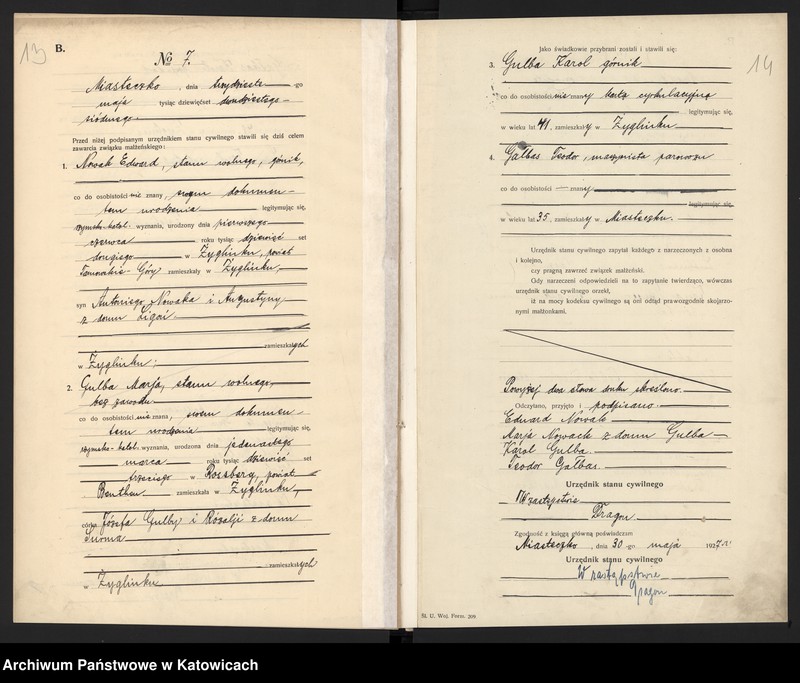 13
B.
№ 7.
Miasteczko, dnia trzydzieste -go
maja tysiąc dziewięćset dwudziestego
siódmego
Przed niżej podpisanym urzędnikiem stanu cywilnego stawili się dziś celem
zawarcia związku małżeńskiego:
1. Nowak Edward, stanu wolnego, górnik,
co do osobistości nie znany, swym dokumen-
tem urodzenia legitymując się,
rzymsko-katol. wyznania, urodzony dnia pierwszego
czerwca roku tysiąc dziewięć set
drugiego w Żyglinku, powiat
Tarnowskie-Góry zamieszkały w Żyglinku,
syn Antoniego Nowaka i Augustyny
z domu Ligoń
zamieszkałych
w Żyglinku;
2. Gulba Marja, stanu wolnego,
bez zawodu
co do osobistości nie znana, swem dokumen-
tem urodzenia legitymując się,
rzymsko-katol. wyznania, urodzona dnia jedenastego
marca roku tysiąc dziewięć set
trzeciego w Rossberg, powiat
Beuthen zamieszkała w Żyglinku,
córka Józefa Gulby i Rozalji z domu
Surma
zamieszkałych
w Żyglinku
14
Jako świadkowie przybrani zostali i stawili się:
3. Gulba Karol górnik
co do osobistości nie znany kartą cyrkulacyjną
legitymując się,
w wieku lat 41, zamieszkały w Żyglinku
4. Galbas Teodor, maszynista parowozu
co do osobistości — znany
legitymując się,
w wieku lat 35, zamieszkały w Miasteczku.
Urzędnik stanu cywilnego zapytał każdego z narzeczonych z osobna
i kolejno,
czy pragną zawrzeć związek małżeński.
Gdy narzeczeni odpowiedzieli na to zapytanie twierdząco, wówczas
urzędnik stanu cywilnego orzekł,
iż na mocy kodeksu cywilnego są oni odtąd prawozgodnie skojarzo-
nymi małżonkami.
Powyżej dwa słowa druku skreślono.
Odczytano, przyjęto i podpisano
Edward Nowak
Marja Nowack z domu Gulba
Karol Gulba.
Teodor Galbas.
Urzędnik stanu cywilnego
W zastępstwie
Dragon
Zgodność z księgą główną poświadczam
Miasteczko, dnia 30-go maja 1927 r.
Urzędnik stanu cywilnego
W zastępstwie
Dragon
St. U. Woj. Form. 309
Archiwum Państwowe w Katowicach